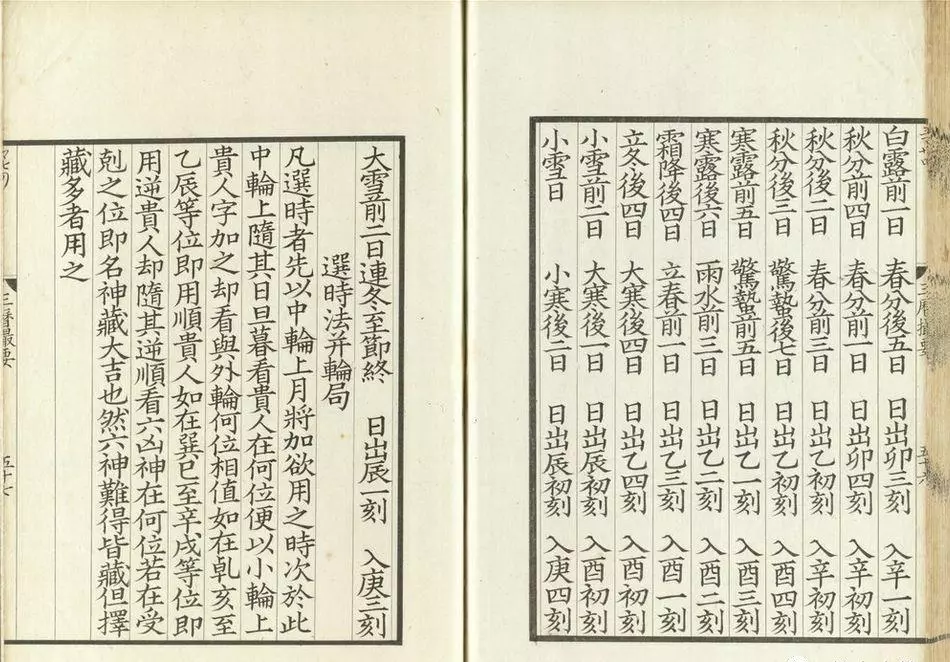 白露前一日 春分後五日 日出卯三刻 入辛一刻
秋分前四日 春分前一日 日出卯四刻 入辛初刻
秋分後二日 春分前三日 日出乙初刻 入辛初刻
秋分後三日 驚蟄後七日 日出乙初刻 入酉四刻
寒露前五日 驚蟄前五日 日出乙一刻 入酉三刻
寒露後六日 雨水前三日 日出乙二刻 入酉二刻
霜降後四日 立春前一日 日出乙三刻 入酉一刻
立冬後四日 大寒後四日 日出乙四刻 入酉初刻
小雪前二日 大寒後一日 日出辰初刻 入酉初刻
小雪日 小寒後二日 日出辰初刻 入庚四刻
大雪前二日連冬至節終 日出辰一刻 入庚三刻
選時法并輪局
凡選時者先以中輪上月將加欲用之時次於此
中輪上隨其日旦暮看貴人在何位便以小輪上
貴人字加之却看與外輪何位相值如在乹亥至
乙辰等位即用順貴人如在巽巳至辛戌等位即
用逆貴人却隨其逆順看六凶神在何位若在受
剋之位即名神藏大吉也然六神難得皆藏但擇
藏多者用之
三曆撮要
五十七